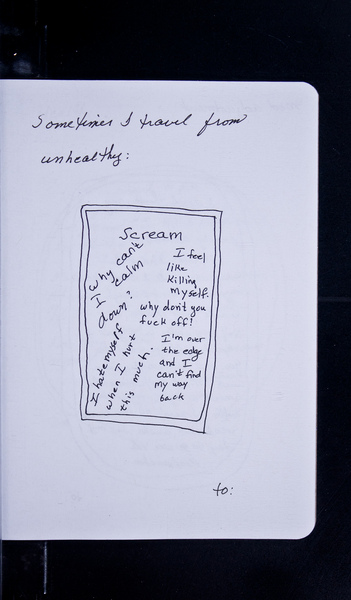 Sometimes I travel from
unhealthy:
Scream
why can't
I calm
down?
I hate myself
when I hurt
this much.
I feel
like
killing
myself.
why don't you
fuck off!
I'm over
the edge
and I
can't find
my way
back
to: